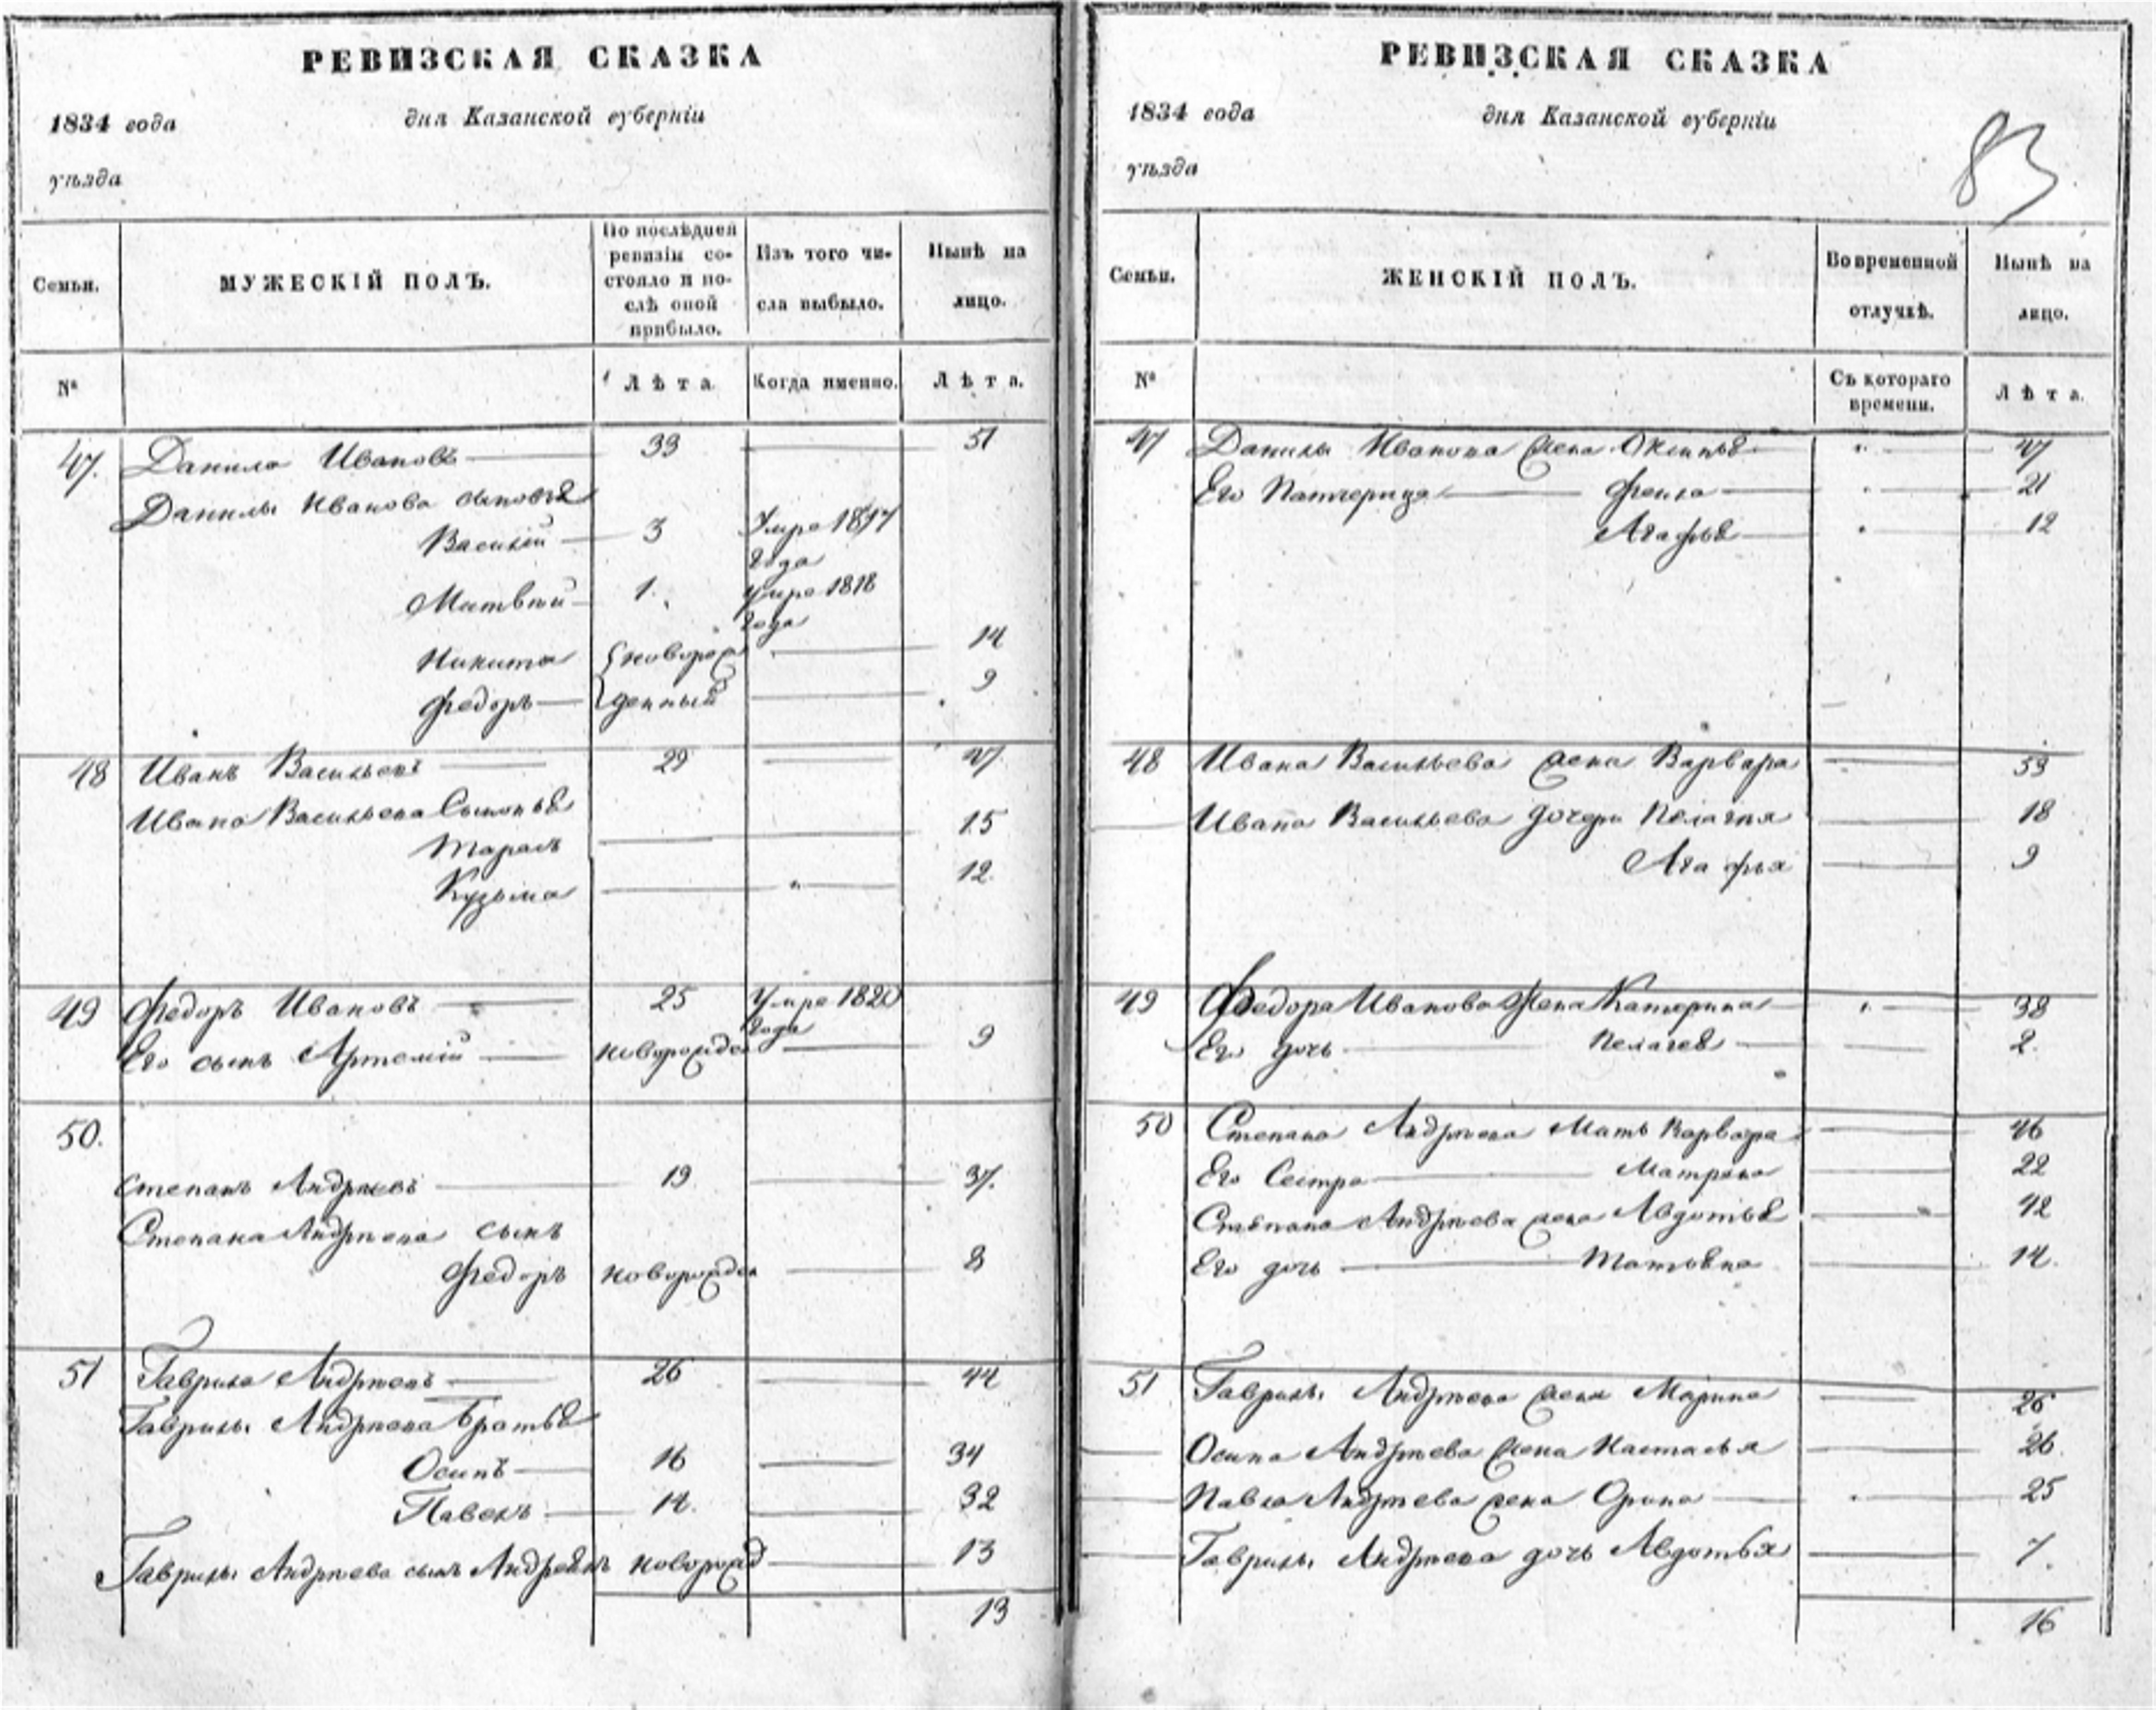 РЕВИЗСКАЯ СКАЗКА
1834 года дня Казанской губерніи
уѣзда
Семьи. МУЖЕСКІЙ ПОЛЪ. По послѣдней ревизіи состояло и послѣ оной прибыло. Изъ того числа выбыло. Нынѣ на лицо.
№ Лѣта. Когда именно. Лѣта.
47. Данило Ивановъ 33 51
Данилы Иванова сыновья
Василій 3 Умре 1817 года
Матвѣй 1. Умре 1818 года
Никита новорож 14
Федоръ денный 9
48 Иванъ Васильевъ 29 47
Ивана Васильева Сыновья
Тарасъ 15
Кузьма 12.
49 Федоръ Ивановъ 25 Умре года
Его сынъ Артемій новорожден 9
50.
Степанъ Андрѣевъ 19 37.
Степана Андрѣева сынъ
Федоръ новорожден 8
51 Гаврила Андрѣевъ 26 44
Гаврилы Андрѣева Братья
Осипъ 16 34
Павелъ 14. 32
Гаврилы Андрѣева сынъ новорожд 13
13
РЕВИЗСКАЯ СКАЗКА
1834 года дня Казанской губерніи
уѣзда
83
Семьи. ЖЕНСКІЙ ПОЛЪ. Во временной отлучкѣ. Нынѣ на лицо.
№ Съ котораго времени. Лѣта.
47 Данилы Иванова жена 47
Его Патчерица 21
Агафья 12
48 Ивана Васильева жена Варвара 53
Ивана Васильева дочери Пелагея 18
Агафья 9
49 Федора Иванова Жена Катерина 38
Его дочь Пелагея 2.
50 Степана Андрѣева Мать Варвара 46
Его Сестра Матрена 22
Степана Андрѣева жена Авдотья 42
Его дочь Татьяна 14.
51 Гаврилы Андрѣева жена Марина 26
Осипа Андрѣева жена Настасья 26.
Павла Андрѣева жена Орина 25
Гаврилы Андрѣева дочь Авдотья 7.
16